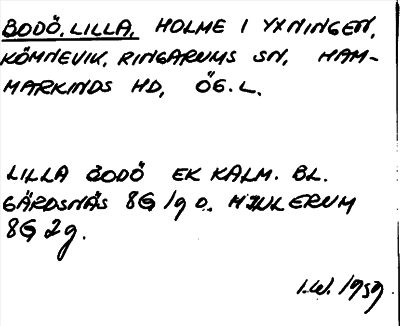 BODÖ, LILLA, HOLME I YXNINGEN,
KÖMNEVIK, RINGARUMS SN, HAM-
MARKINDS HD, ÖG. L.
LILLA BODÖ EK KALM. BL.
GÄRDSNÄS 8G 1g O. HJULERUM
8G 2g.
I.W. 1959.